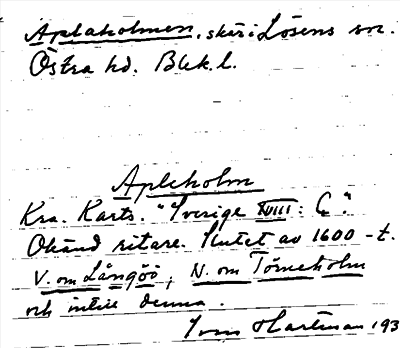 Aplaholmen, skär i Lösens sn.
Östra hd. Blek.l.
Apleholm
Kra. Karts. "Sverige XVIII: C".
Okänd ritare. Slutet av 1600-t.
V. om Långöö, N. om Törneholm
och intill denna.
Hartman 193